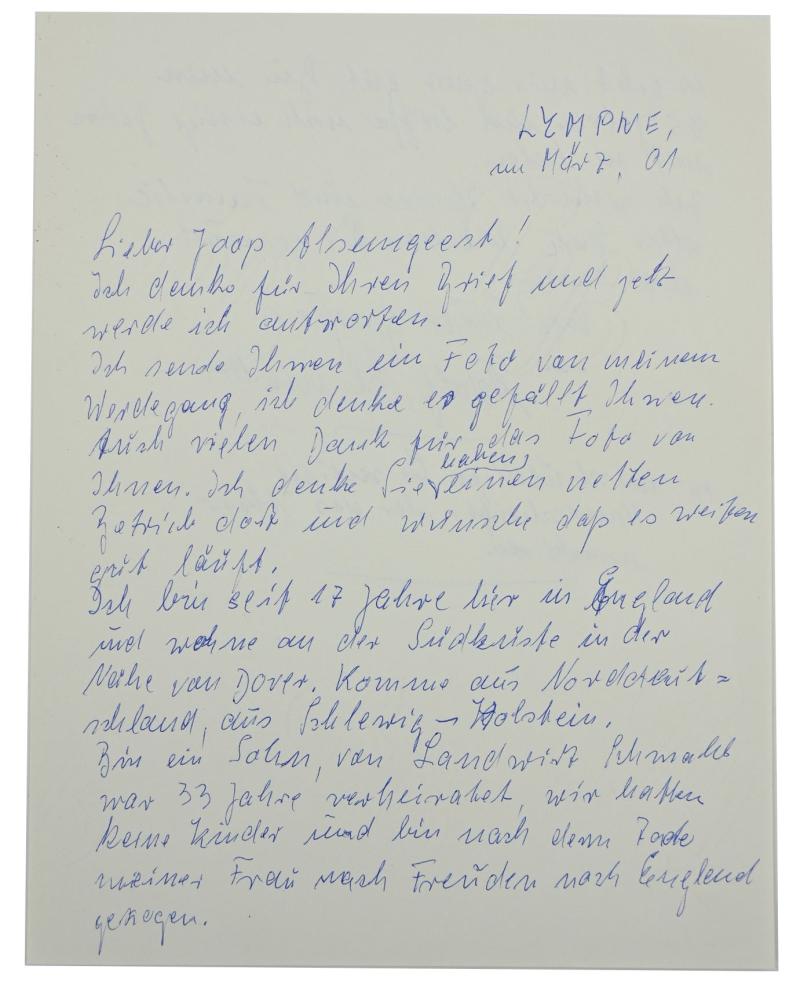 LYMPNE,
im März, 01
Lieber Jaap Alsemgeest!
Ich danke für Ihren Brief und jetz
werde ich antworten.
Ich sende Ihnen ein Foto von meinem
Werdegang, ich denke es gefällt Ihnen.
Auch vielen Dank für das Foto von
Ihnen. Ich denke Sie haben einen netten
Betrieb dort und wünsche daß es weiter
gut läuft.
Ich bin seit 17 Jahre hier in England
und wohne an der Südküste in der
Nähe von Dover. Komme aus Norddeut=
schland, aus Schlewig-Holstein.
Bin ein Sohn, von Landwirt
war 33 Jahre verheiratet, wir hatten
keine Kinder und bin nach dem Tode
meiner Frau nach Freuden nach England
gezogen.